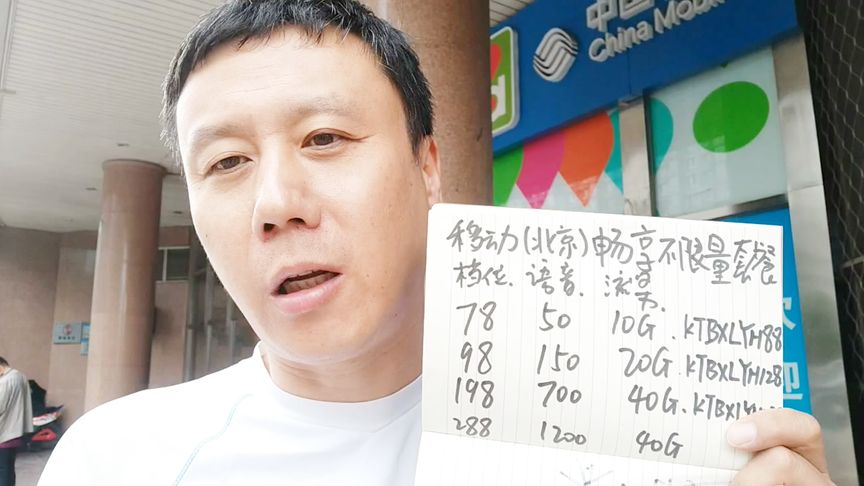 中国
China Mobi
移动(北京)畅享不限量套餐
档位. 语音. 流量.
78 50 10G. KTBXLYH88
98 150 20G. KTBXLYH128
198 700 40G. KTBXLY
288 1200 40G